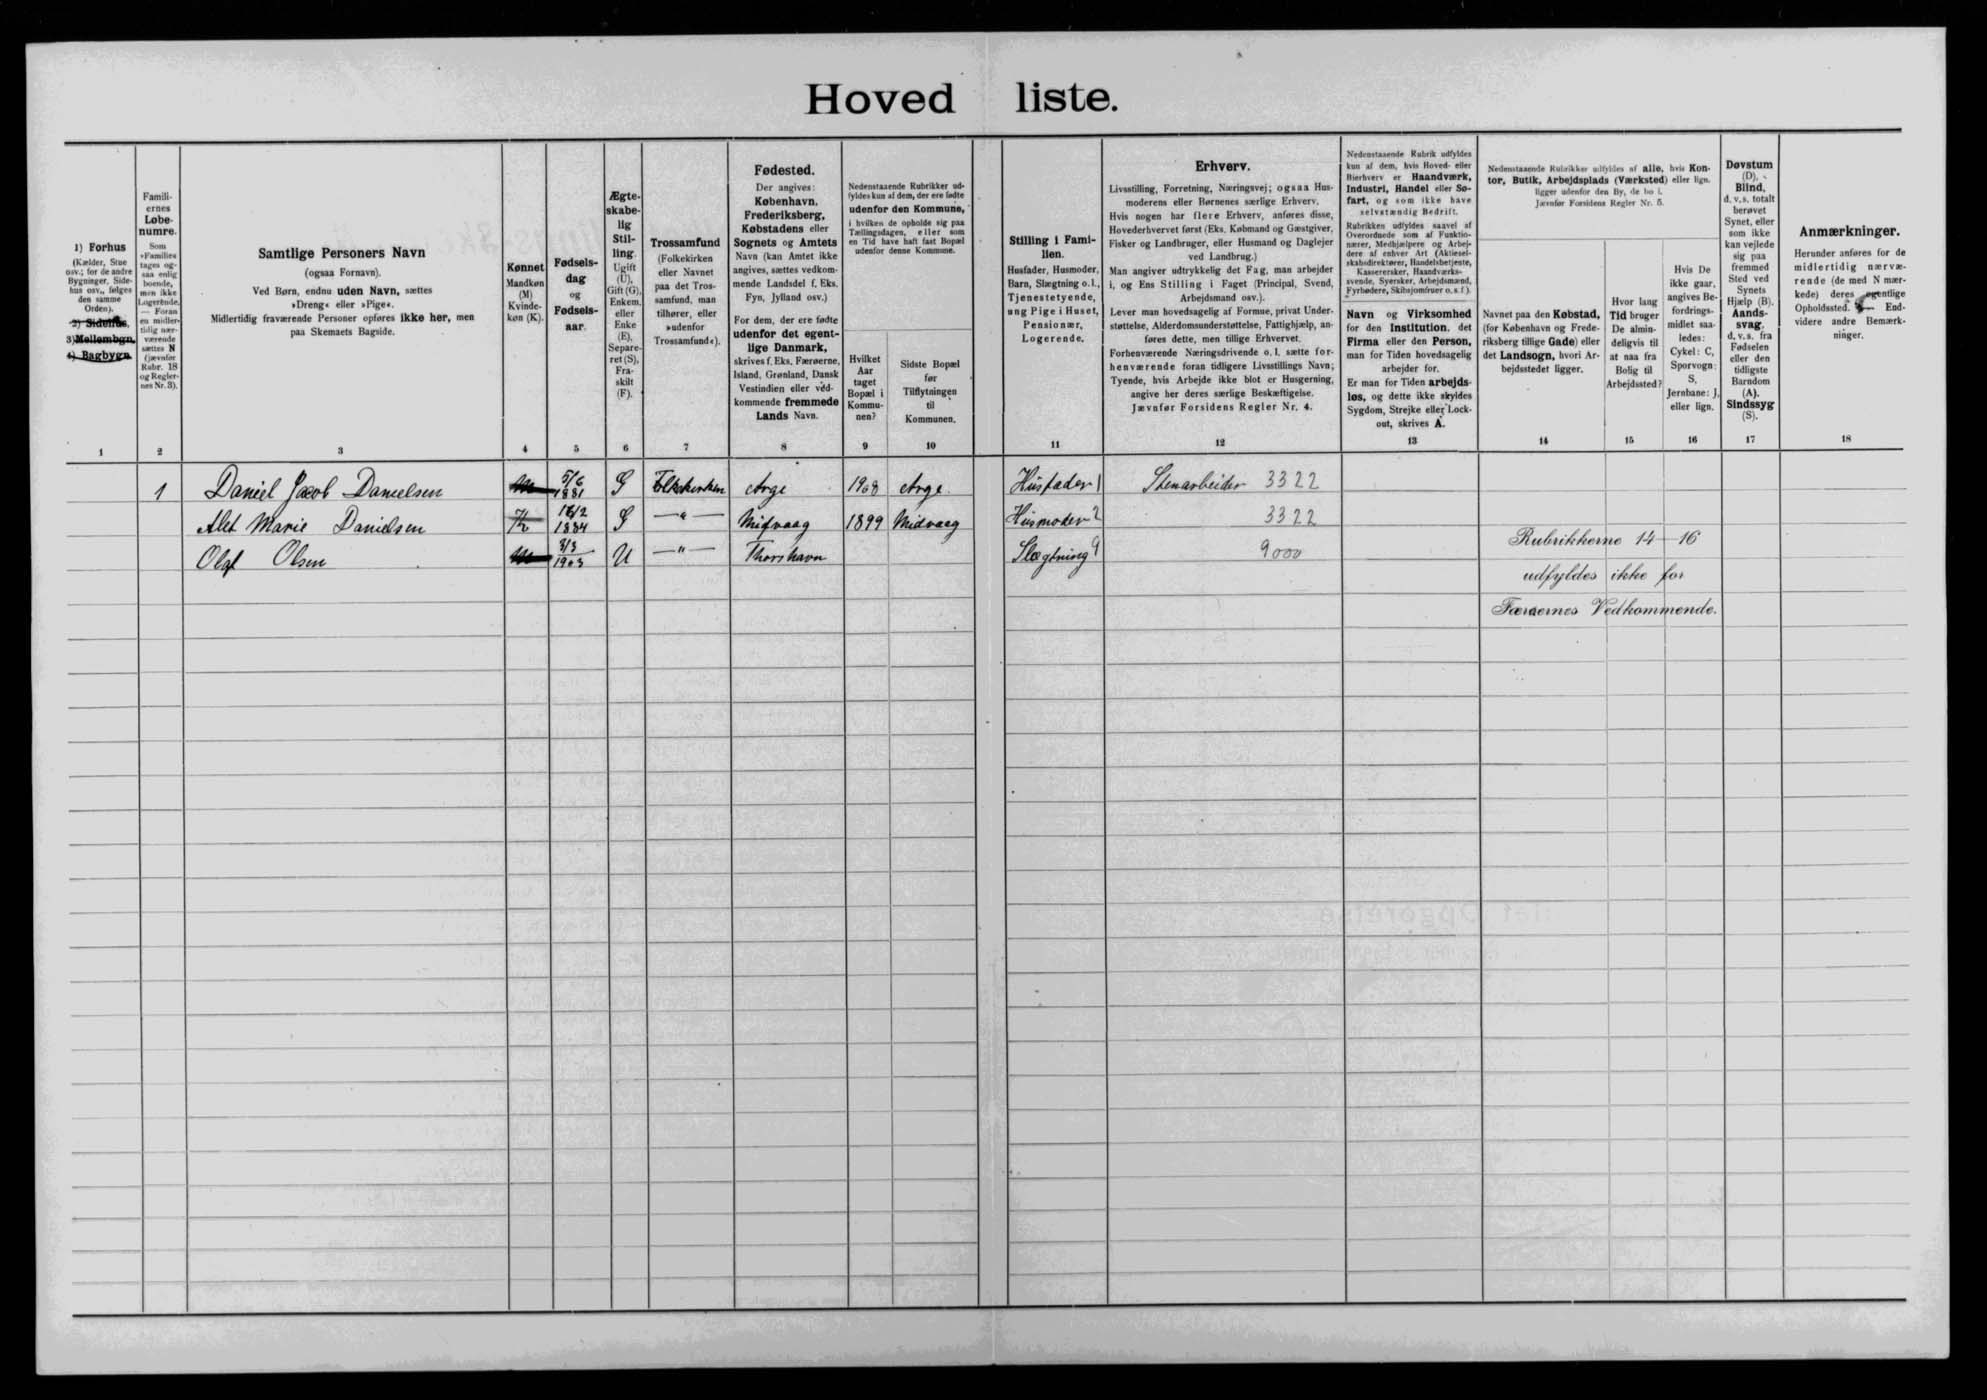 Hoved liste.
1) Forhus
(Kælder, Stue
osv.; for de andre
Bygninger, Side-
hus osv., følges
den samme
Orden).
2) Sidehus,
3) Mellembgn.
4) Bagbygn.
1
Famili-
ernes
Løbe-
numre.
Som
»Familie«
tages og-
saa enlig
boende,
men ikke
Logerende.
— Foran
en midler-
tidig nær-
værende
sættes N
(jævnfør
Rubr. 18
og Regler-
nes Nr. 3).
2
Samtlige Personers Navn
(ogsaa Fornavn).
Ved Børn, endnu uden Navn, sættes
»Dreng« eller »Pige«.
Midlertidig fraværende Personer opføres ikke her, men
paa Skemaets Bagside.
3
Kønnet
Mandkøn
(M)
Kvinde-
køn (K).
4
Fødsels-
dag
og
Fødsels-
aar.
5
Ægte-
skabe-
lig
Stil-
ling.
Ugift
(U),
Gift (G),
Enkem.
eller
Enke
(E),
Separe-
ret (S),
Fra-
skilt
(F).
6
Trossamfund
(Folkekirken
eller Navnet
paa det Tros-
samfund, man
tilhører, eller
»udenfor
Trossamfund«).
7
Fødested.
Der angives:
København,
Frederiksberg,
Købstadens eller
Sognets og Amtets
Navn (kan Amtet ikke
angives, sættes vedkom-
mende Landsdel f. Eks.
Fyn, Jylland osv.)
For dem, der ere fødte
udenfor det egent-
lige Danmark,
skrives f. Eks. Færøerne,
Island, Grønland, Dansk
Vestindien eller ved-
kommende fremmede
Lands Navn.
8
Nedenstaaende Rubrikker ud-
fyldes kun af dem, der ere fødte
udenfor den Kommune,
i hvilken de opholde sig paa
Tællingsdagen, eller som
en Tid have haft fast Bopæl
udenfor denne Kommune.
Hvilket
Aar
taget
Bopæl i
Kommu-
nen?
9
Sidste Bopæl
før
Tilflytningen
til
Kommunen.
10
Stilling i Fami-
lien.
Husfader, Husmoder,
Barn, Slægtning o. l.,
Tjenestetyende,
ung Pige i Huset,
Pensionær,
Logerende.
11
Erhverv.
Livsstilling, Forretning, Næringsvej; ogsaa Hus-
moderens eller Børnenes særlige Erhverv.
Hvis nogen har flere Erhverv, anføres disse,
Hovederhvervet først (Eks. Købmand og Gæstgiver,
Fisker og Landbruger, eller Husmand og Daglejer
ved Landbrug.)
Man angiver udtrykkelig det Fag, man arbejder
i, og Ens Stilling i Faget (Principal, Svend,
Arbejdsmand osv.).
Lever man hovedsagelig af Formue, privat Under-
støttelse, Alderdomsunderstøttelse, Fattighjælp, an-
føres dette, men tillige Erhvervet.
Forhenværende Næringsdrivende o. l. sætte for-
henværende foran tidligere Livsstillings Navn;
Tyende, hvis Arbejde ikke blot er Husgerning,
angive her deres særlige Beskæftigelse.
Jævnfør Forsidens Regler Nr. 4.
12
Nedenstaaende Rubrik udfyldes
kun af dem, hvis Hoved- eller
Bierhverv er Haandværk,
Industri, Handel eller Sø-
fart, og som ikke have
selvstændig Bedrift.
Rubrikken udfyldes saavel af
Overordnede som af Funktio-
nærer, Medhjælpere og Arbej-
dere af enhver Art (Aktiesel-
skabsdirektører, Handelsbetjente,
Kasserersker, Haandværks-
svende, Syersker, Arbejdsmænd,
Fyrbødere, Skibsjomfruer o. s. f.).
Navn og Virksomhed
for den Institution, det
Firma eller den Person,
man for Tiden hovedsagelig
arbejder for.
Er man for Tiden arbejds-
løs, og dette ikke skyldes
Sygdom, Strejke eller Lock-
out, skrives A.
13
Nedenstaaende Rubrikker udfyldes af alle, hvis Kon-
tor, Butik, Arbejdsplads (Værksted) eller lign.
ligger udenfor den By, de bo i.
Jævnfør Forsidens Regler Nr. 5.
Navnet paa den Købstad,
(for København og Frede-
riksberg tillige Gade) eller
det Landsogn, hvori Ar-
bejdsstedet ligger.
14
Hvor lang
Tid bruger
De almin-
deligvis til
at naa fra
Bolig til
Arbejdssted?
15
Hvis De
ikke gaar,
angives Be-
fordrings-
midlet saa-
ledes:
Cykel: C,
Sporvogn:
S,
Jernbane: J,
eller lign.
16
Døvstum
(D),
Blind,
d. v. s. totalt
berøvet
Synet, eller
som ikke
kan vejlede
sig paa
fremmed
Sted ved
Synets
Hjælp (B).
Aands-
svag,
d. v. s. fra
Fødselen
eller den
tidligste
Barndom
(A).
Sindssyg
(S).
17
Anmærkninger.
Herunder anføres for de
midlertidig nærvæ-
rende (de med N mær-
kede) deres egentlige
Opholdssted. — End-
videre andre Bemærk-
ninger.
18
1 Daniel Jacob Danielsen M 5/6 1881 G Folkekirken Arge 1908 Arge. Husfader 1 Stenarbeider 3322
Alet Marie Danielsen K 1884 G — " — Midvaag 1899 Midvaag Husmoder 2 3322
Olaf Olsen M 3/3 1903 U — " — Thorshavn Slægtning 9 9000
Rubrikkerne 14—16
udfyldes ikke for
Færøernes Vedkommende.